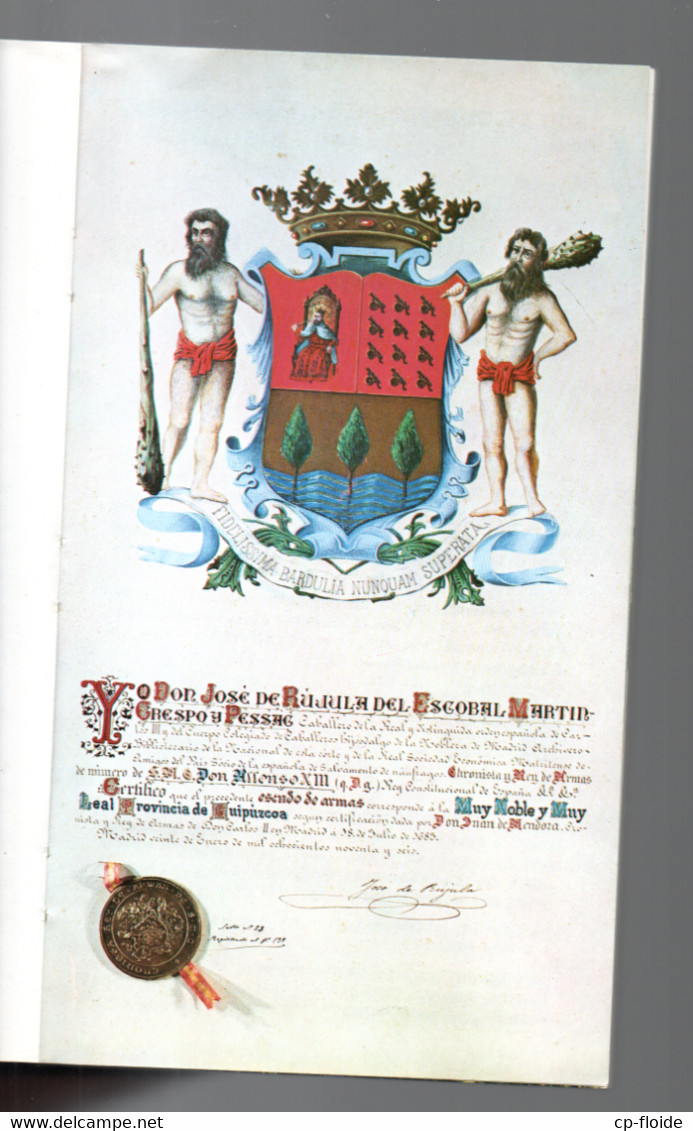 FIDELISSIMA BARDULIA NUNQUAM SUPERATA.
Yo Don José de Rújula del Escobal Martin-
Crespo y Pessac Caballero de la Real y distinguida orden española de Car-
los III y del Cuerpo Colegiado de Caballeros hijosdalgo de la Nobleza de Madrid Archivero-
Bibliotecario de la Nacional de esta corte y de la Real Sociedad Económica Matritense de
Amigos del Pais Sócio de la española de Salvamento de náufragos. Chronista y Rey de Armas
de número de S.M.C. Don Alfonso XIII (q. D. g.) Rey Constitucional de España &ª &ª
Certifico que el precedente escudo de armas corresponde á la Muy Noble y Muy
Leal Provincia de Guipúzcoa segun certificación dada por Don Juan de Mendoza, Cro-
nista y Rey de Armas de Don Carlos II en Madrid á 18 de Julio de 1689.
Madrid veinte de Enero de mil ochocientos noventa y seis.
José de Rújula
cp-floide